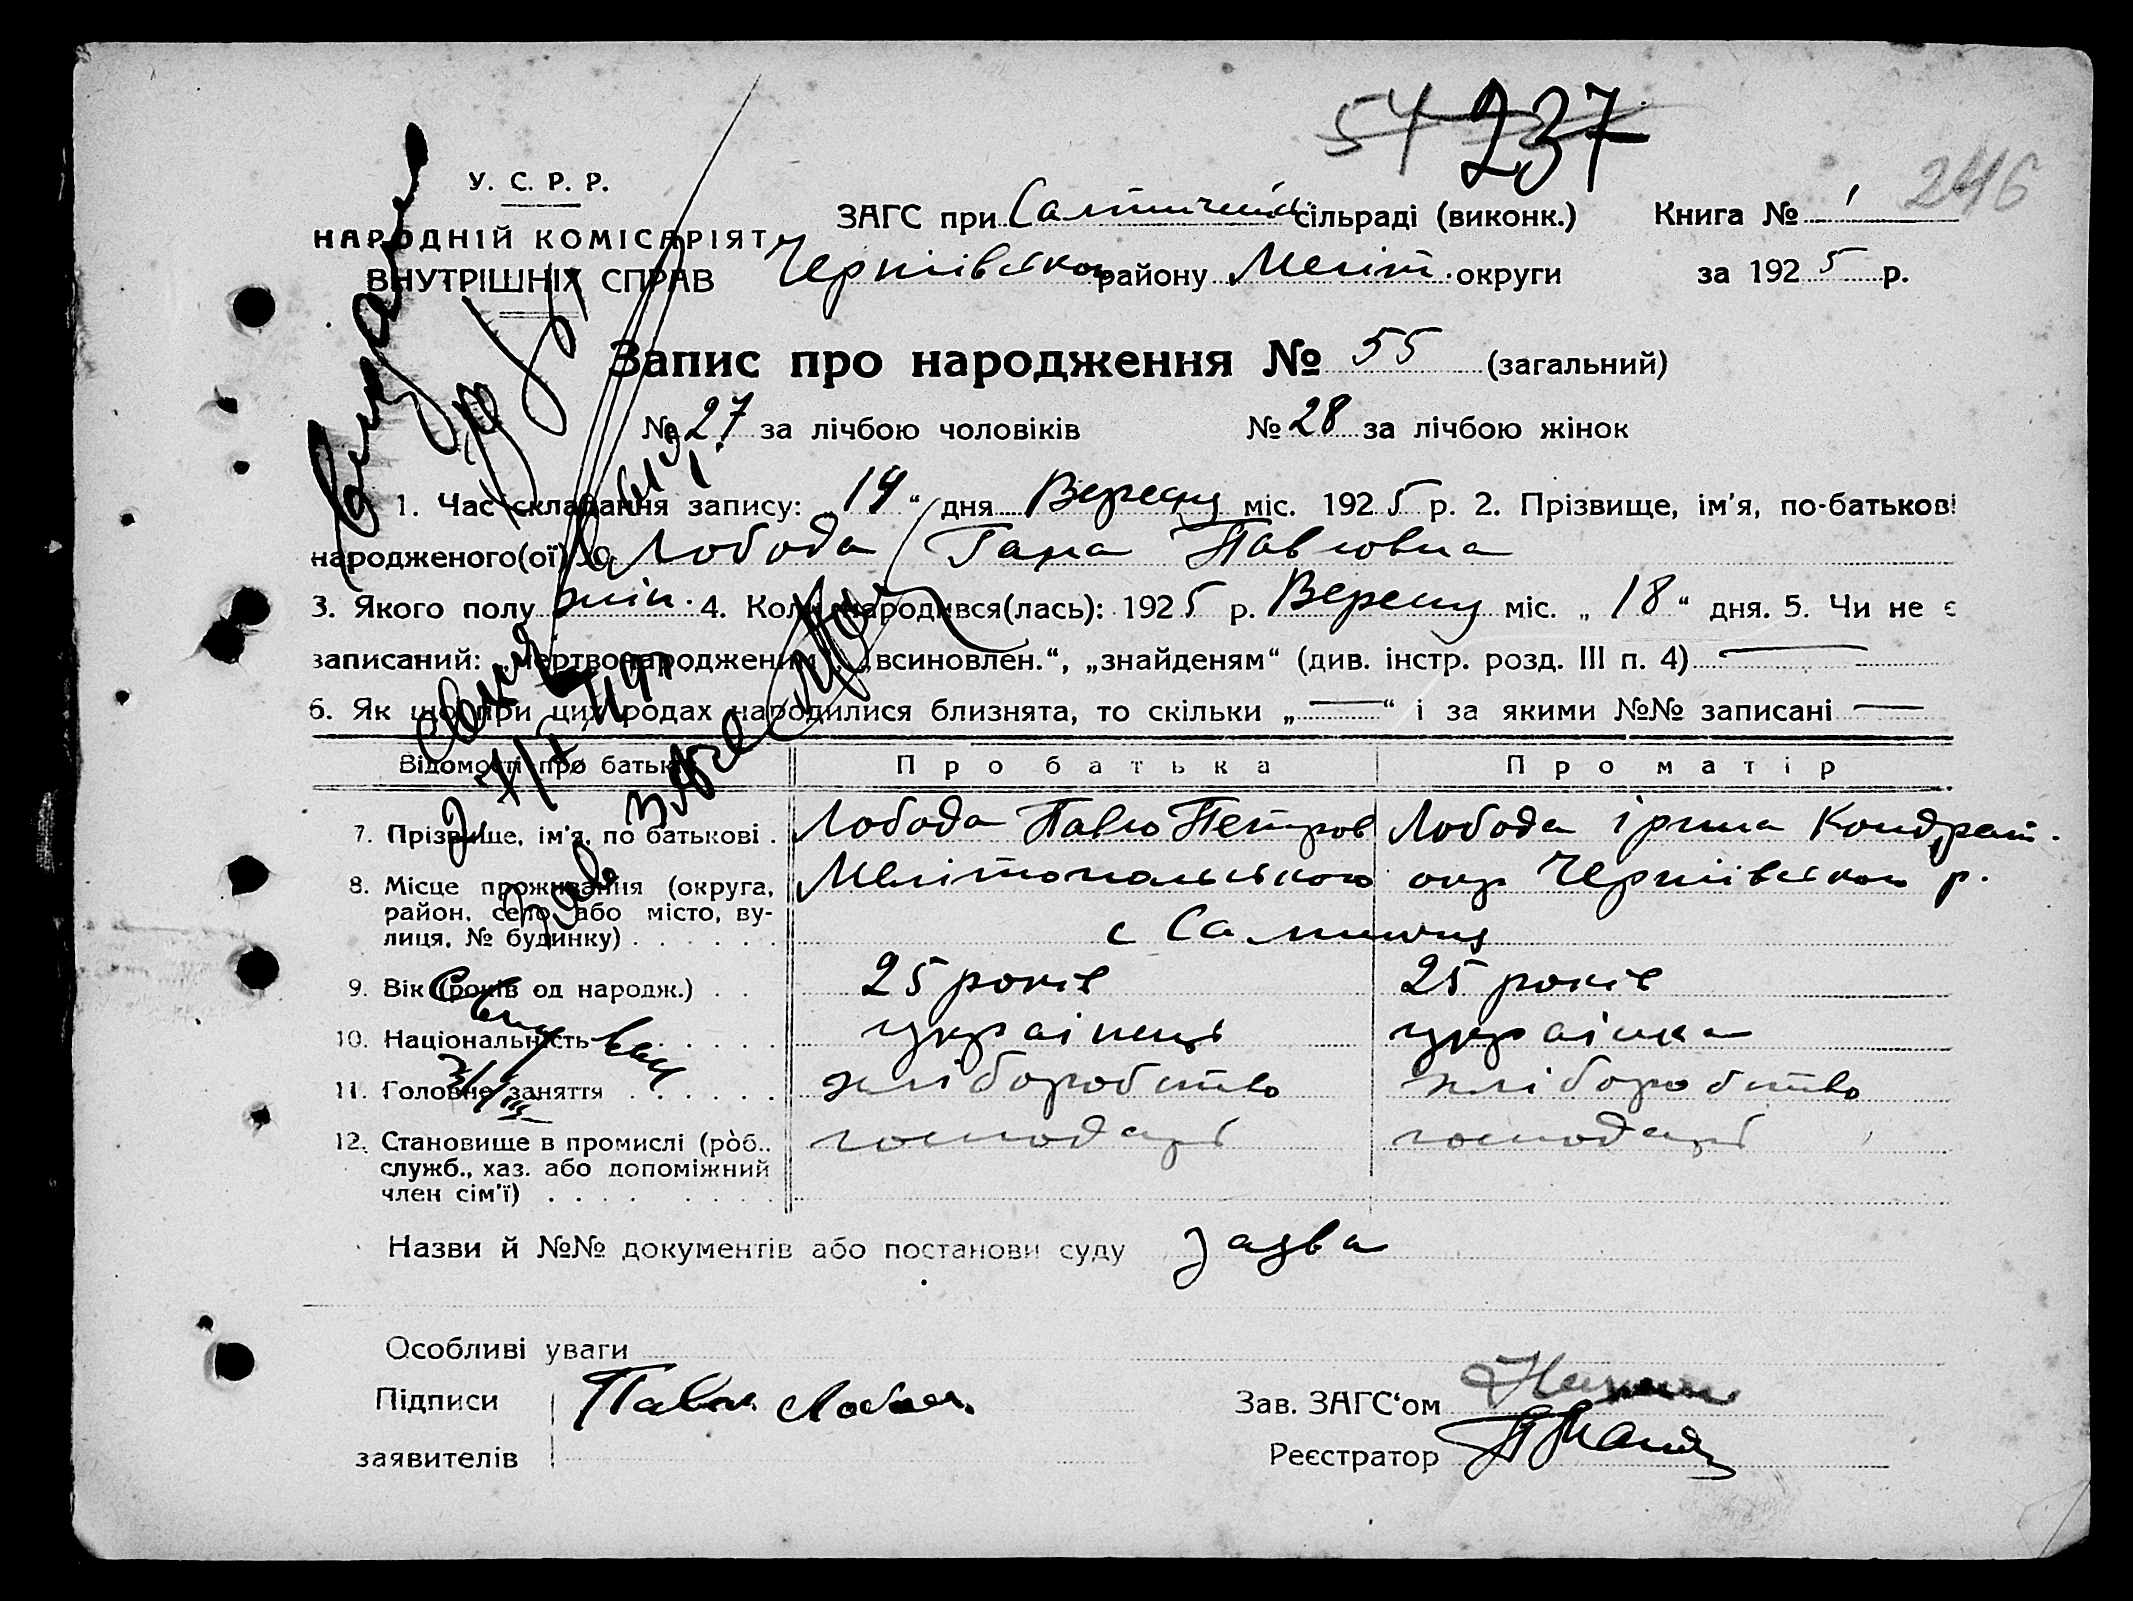 54 237
246
У. С. Р. Р.
НАРОДНІЙ КОМІСАРІЯТ
ВНУТРІШНІХ СПРАВ
ЗАГС при Салтичій сільраді (виконк.) Книга № 1
Чернівського району Меліт. округи за 1925 р.
Запис про народження № 55 (загальний)
№ 27 за лічбою чоловіків № 28 за лічбою жінок
1. Час складання запису: „19“ дня Вересня міс. 1925 р. 2. Прізвище, ім'я, по-батькові
народженого(ої) Лобода Гана Павловна
3. Якого полу жін. 4. Коли народився(лась): 1925 р. Вересня міс. „18“ дня. 5. Чи не є
записаний: „мертвонародженим“, „всиновлен.“, „знайденям“ (див. інстр. розд. III п. 4) —
6. Як що при цих родах народилися близнята, то скільки „—“ і за якими №№ записані —
Відомості про батьків Про батька Про матір
7. Прізвище, ім'я, по батькові . Лобода Павло Петров Лобода Ірина Кондрат.
8. Місце проживання (округа, район, село або місто, вулиця, № будинку) . . . . . . Мелітопольського окр Чернівського р.
с Салтичия
9. Вік (років од народж.) . . 25 років 25 років
10. Національність . . . . . . українець українка
11. Головне заняття . . . . . . хліборобство хліборобство
12. Становище в промислі (роб.. служб., хаз. або допоміжний член сім'ї) . . . . . . . . господарь господарь
Назви й №№ документів або постанови суду заява
Особливі уваги
Підписи Павло Лобода Зав. ЗАГС'ом
заявителів Реєстратор